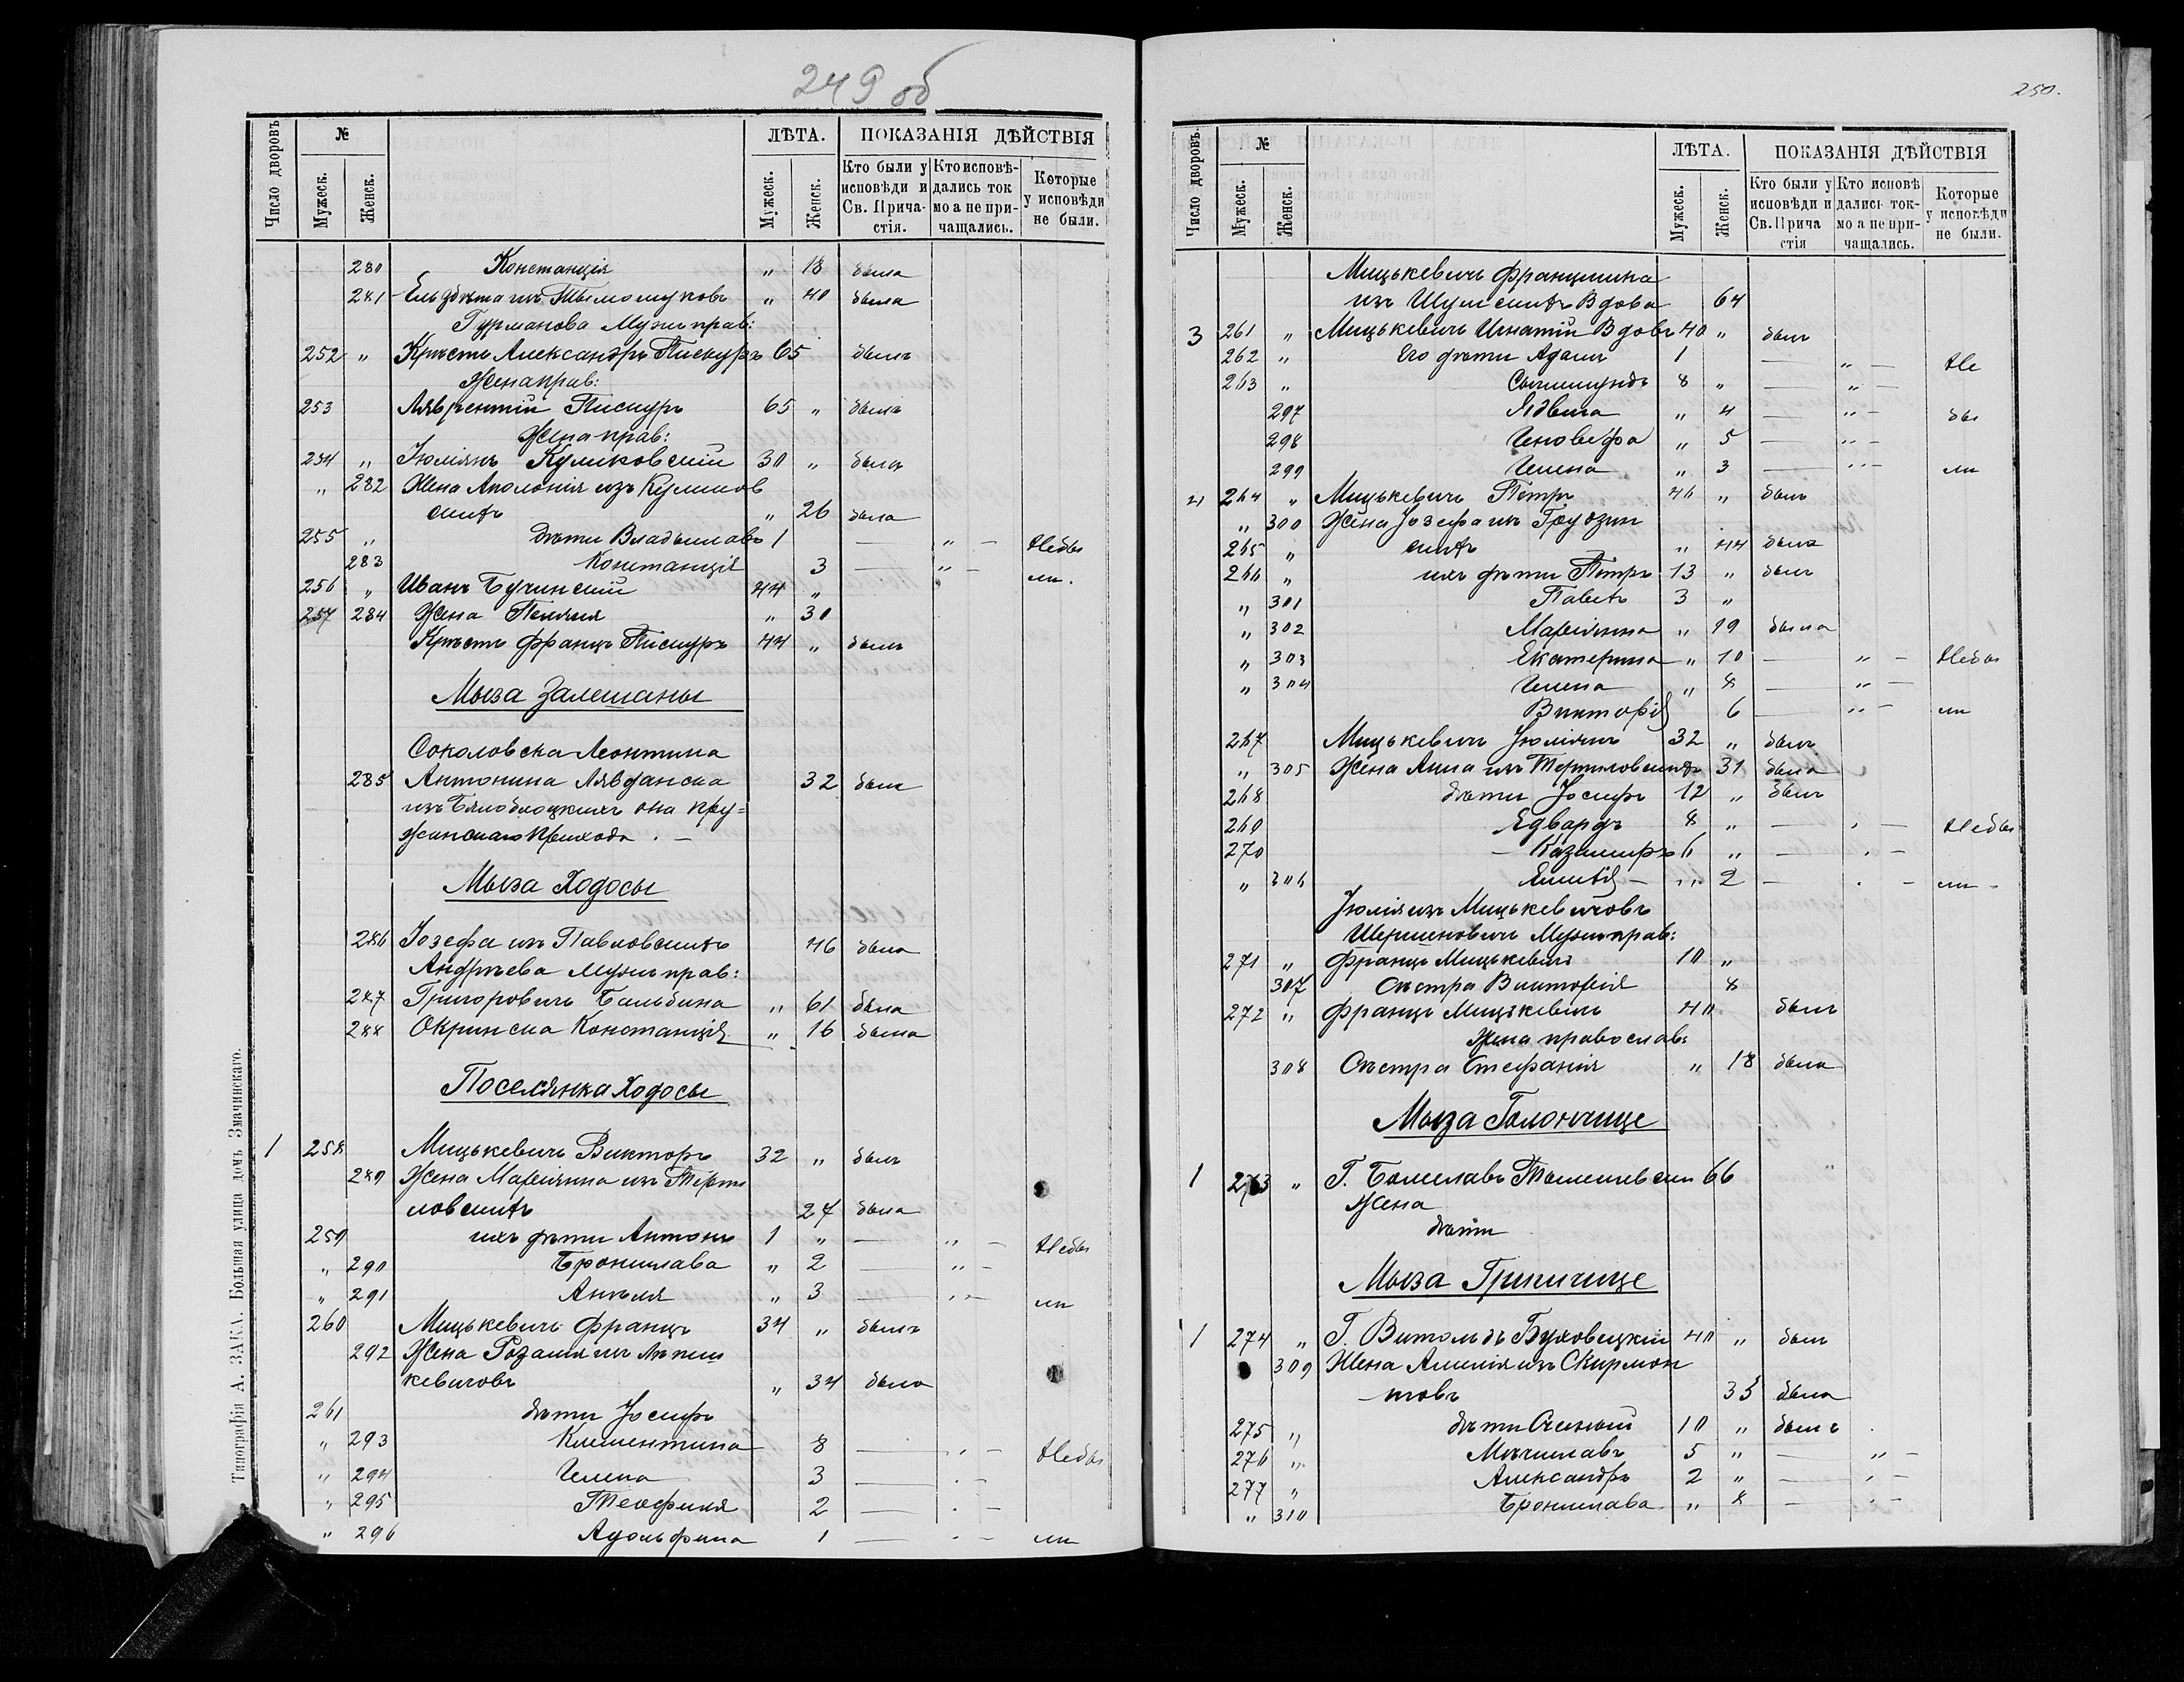 249 об
Число дворовъ
№
Мужеск.
Женск.
ЛѢТА.
Мужеск.
Женск.
ПОКАЗАНІЯ ДѢЙСТВІЯ
Кто были у исповѣди и Св. Прича-стія.
Кто исповѣ-дались ток мо а не при-чащались.
Которые у исповѣди не были.
280 Констанція " 18 была
281 Ельдбѣта изъ Тымошуковъ " 40 была
Гурманова Мужъ прав:
252 " Кръстъ Александръ Пискуръ 65 былъ
Жена прав:
253 Лявр҃ентій Пискуръ 65 " былъ
Жена прав:
254 " Юліянъ Куликовскій 30 " былъ
" 282 Жена Аполонія изъ Куликов
скихъ " 26 была
255 " дѣти Владыславъ 1 — " — Небы
283 Констанція 3 — " — ли.
256 " Иванъ Бучинскій 44 "
257 284 Жена Пелягія " 30
Кръстъ Францъ Пискуръ 44 " былъ
Мыза Залешаны
Соколовска Леонтина
285 Антонина 32 была
изъ Бялоблоцкихъ она пру=
жанскаго Прихода . —
Мыза Ходосы
286 Іозефа изъ Павловскихъ 46 была
Андрѣева Мужъ прав:
287 Григоровичъ Бальбина " 61 была
288 Окринска Констанція " 16 была
Поселянка Ходосы
1 258 Мицькевичъ Викторъ 32 " былъ
289 Жена Маріянна изъ Терти
ловскихъ 27 была
259 ихъ дѣти Антонъ 1 " — " — Небы
" 290 Бронислава " 2 — " —
" 291 Анѣля " 3 — " — ли
260 Мицькевичъ Францъ 34 " былъ
292 Жена Розалія изъ Лѣпеш
кевичовъ " 34 была
261 дѣти Іосифъ
" 293 Клементина 8 — " — Небы
" 294 Гелена 3 — " —
" 295 Теофиля 2 — " —
" 296 Адольфина 1 — " — ли
Типографія А. ЗАКА. Большая улица домъ Змачинскаго.
250.
Число дворовъ.
№
Мужеск.
Женск.
ЛѢТА.
Мужеск.
Женск.
ПОКАЗАНІЯ ДѢЙСТВІЯ
Кто были у исповѣди и Св. Прича стія
Кто исповѣ дались ток-мо а не при-чащались.
Которые у исповѣди не были.
Мицькевичъ Францишка
изъ Шумскихъ Вдова 64
3 261 " Мицькевичъ Игнатій Вдовъ 40 " былъ
262 " Его дѣти Адамъ 1 — " — Не
263 " Сыгизмундъ 8 " — " —
297 Ядвига " 4 — " — бы
298 Геновефа " 5 — " —
299 Гелена " 3 — " — ли
4 264 " Мицькевичъ Петръ 46 " былъ
" 300 Жена Іозефа изъ Грудзин
265 " скихъ " 44 была
266 " ихъ дѣти Петръ 13 " былъ
" 301 Павелъ 3 "
" 302 Маріянна " 19 была
" 303 Екатерина " 10 — " — Небы
" 304 Гелена " 8 — " —
Викторія 6 — " — ли
267 Мицькевичъ Юліянъ 32 " былъ
" 305 Жена Анна изъ Тертиловскихъ 31 была
268 дѣти Іосифъ 12 " былъ
269 Едвардъ 8 " — " — Небы
270 Казимиръ 6 " — " —
" 306 Емилія — " 2 — " — ли -
Юлія изъ Мицькевичовъ
Шершеновичъ Мужъ прав:
271 " Францъ Мицькевичъ 10 "
307 Сестра Викторія 8
272 " Францъ Мицькевичъ 40 былъ
Жена православ:
308 Сестра Стефанія " 18 была
Мыза Голончице
1 273 " Г. Болеславъ 66
Жена
дѣти
Мыза Грипчице
1 274 " Г. Витольдъ Буховецкій 40 " былъ
309 Жена Амелія изъ Скирмон
— товъ 35 была
275 " дѣти 10 " былъ
276 " Мечиславъ 5 " — " —
277 " Александръ 2 " — " —
" 310 Бронислава " 8 — " —